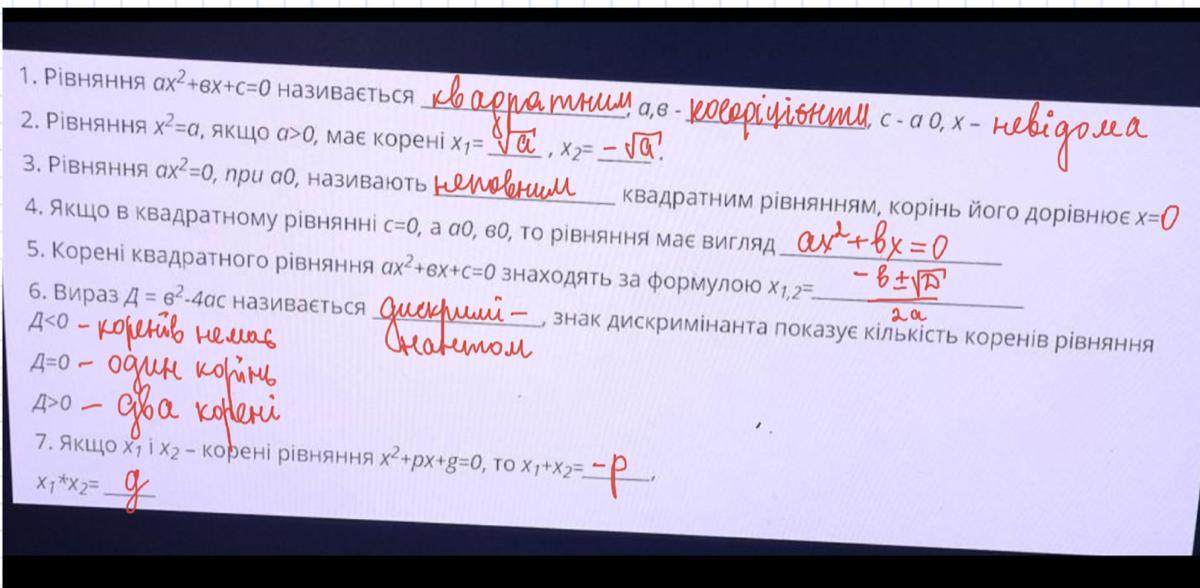 1. Рівняння ах²+вх+с=0 називається квадратним, а,в - коефіцієнти, с - а 0, х – невідома
2. Рівняння х²=а, якщо а>0, має корені х₁= √а , х₂= -√а.
3. Рівняння ах²=0, при а0, називають неповним квадратним рівнянням, корінь його дорівнює х=0
4. Якщо в квадратному рівнянні с=0, а а0, в0, то рівняння має вигляд ах²+вх=0
5. Корені квадратного рівняння ах²+вх+с=0 знаходять за формулою х₁,₂= (-в±√D)/2a
6. Вираз Д = в²-4ас називається дискримі-, знак дискримінанта показує кількість коренів рівняння
нантом
Д<0 - коренів немає
Д=0 - один корінь
Д>0 - два корені
7. Якщо х₁ і х₂ – корені рівняння х²+рх+g=0, то х₁+х₂= -р,
х₁*х₂= g